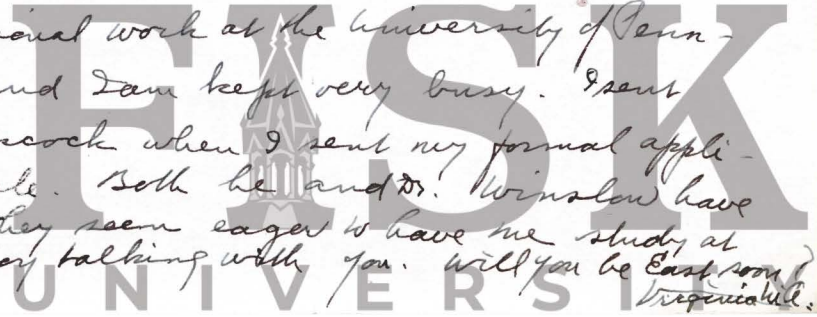 ional work at the University of Penn-
and I am kept very busy. I sent
cock when I sent my formal appli-
le. Both he and Dr. Winslow have
they seem eager to have me study at
talking with you. Will you be East soon?
Virginia
FISK
UNIVERSITY